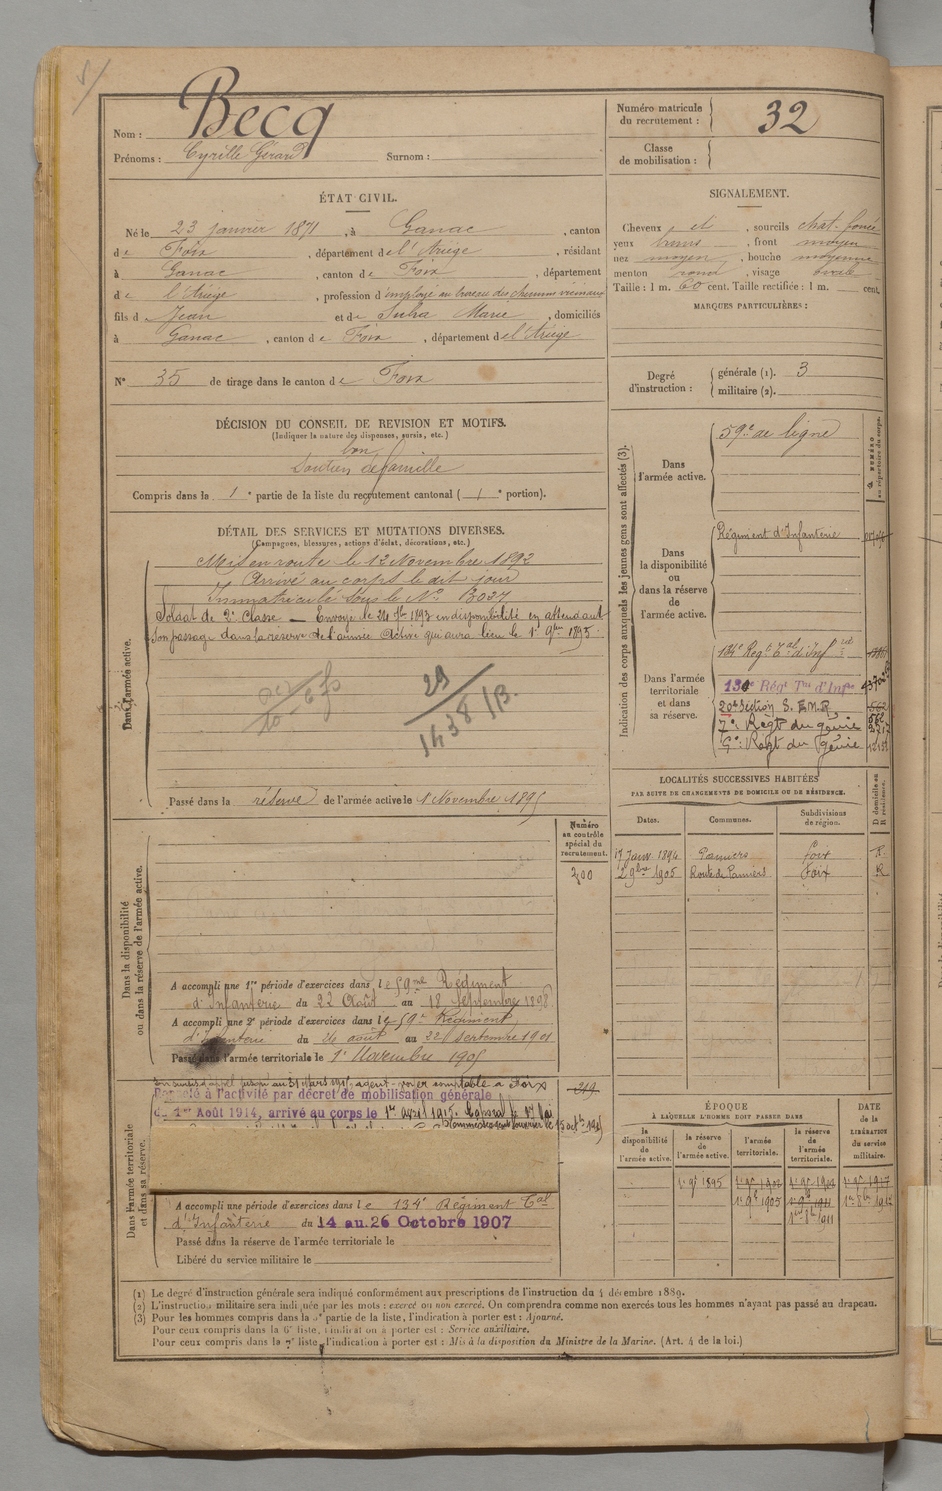 Nom : Becq
Prénoms : Cyrille Gérard Surnom :
Numéro matricule du recrutement : 32
Classe de mobilisation :
ÉTAT CIVIL.
Né le 23 janvier 1871, à Ganac, canton
de Foix, département de l'Ariège, résidant
à Ganac, canton de Foix, département
de l'Ariège, profession d'employé au bureau des chemins vicinaux
fils de Jean et de Subra Marie, domiciliés
à Ganac, canton de Foix, département de l'Ariège
N° 35 de tirage dans le canton de Foix
SIGNALEMENT.
Cheveux et, sourcils chat. foncé
yeux bruns, front moyen
nez moyen, bouche moyenne
menton rond, visage ovale
Taille : 1 m. 60 cent. Taille rectifiée : 1 m. cent.
MARQUES PARTICULIÈRES :
Degré d'instruction : générale (1). 3
militaire (2).
DÉCISION DU CONSEIL DE REVISION ET MOTIFS.
(Indiquer la nature des dispenses, sursis, etc.)
bon
Soutien de famille
Compris dans la 1e partie de la liste du recrutement cantonal (1e portion).
DÉTAIL DES SERVICES ET MUTATIONS DIVERSES.
(Campagnes, blessures, actions d'éclat, décorations, etc.)
Dans l'armée active.
Mis en route le 12 Novembre 1892
Arrivé au corps le dit jour
Immatriculé sous le N° B037
Soldat de 2e Classe — Envoyé le 24 7bre 1893 en disponibilité en attendant
son passage dans la réserve de l'armée active qui aura lieu le 1er 9bre 1895.
29
1438 /B.
Passé dans la réserve de l'armée active le 1er Novembre 1895
Indication des corps auxquels les jeunes gens sont affectés (3).
NUMÉRO au répertoire du corps.
Dans l'armée active.
59e de ligne
Dans la disponibilité ou dans la réserve de l'armée active.
Régiment d'Infanterie
Dans l'armée territoriale et dans sa réserve.
134e Régt Tal d'Inf
134e Régt Tal d'Infie
20e Section S. E.M.R.
7e Régt du génie
9e Régt du Génie
LOCALITÉS SUCCESSIVES HABITÉES
PAR SUITE DE CHANGEMENTS DE DOMICILE OU DE RÉSIDENCE.
Dates. Communes. Subdivisions de région. D domicile ou R résidence.
17 Janv. 1894 Pamiers Foix R
2 9bre 1905 Route de Pamiers Foix R
Dans la disponibilité ou dans la réserve de l'armée active.
Numéro au contrôle spécial du recrutement.
200
A accompli une 1re période d'exercices dans le 59me Régiment
d'Infanterie du 22 Août au 18 Septembre 1898
A accompli une 2e période d'exercices dans le 59e Régiment
d'Infanterie du 26 août au 22 Septembre 1901
Passé dans l'armée territoriale le 1er Novembre 1905
Dans l'armée territoriale et dans sa réserve.
219
Son sursis d'appel jusqu'au 31 Mars 1915 agent-voyer comptable à Foix
Rappelé à l'activité par décret de mobilisation générale
du 1er Août 1914, arrivé au corps le 1er avril 1915. Caporal le 17 Mai
A accompli une période d'exercices dans le 134e Régiment Tal
d'Infanterie du 14 au 26 Octobre 1907
Passé dans la réserve de l'armée territoriale le
Libéré du service militaire le
ÉPOQUE
À LAQUELLE L'HOMME DOIT PASSER DANS
la disponibilité de l'armée active. la réserve de l'armée active. l'armée territoriale. la réserve de l'armée territoriale.
DATE de la LIBÉRATION du service militaire.
1er 9e 1895
1er 9e 1905
(1) Le degré d'instruction générale sera indiqué conformément aux prescriptions de l'instruction du 4 décembre 1889.
(2) L'instruction militaire sera indiquée par les mots : exercé ou non exercé. On comprendra comme non exercés tous les hommes n'ayant pas passé au drapeau.
(3) Pour les hommes compris dans la 5e partie de la liste, l'indication à porter est : Ajourné.
Pour ceux compris dans la 6e liste, l'indication à porter est : Service auxiliaire.
Pour ceux compris dans la 7e liste, l'indication à porter est : Mis à la disposition du Ministre de la Marine. (Art. 4 de la loi.)